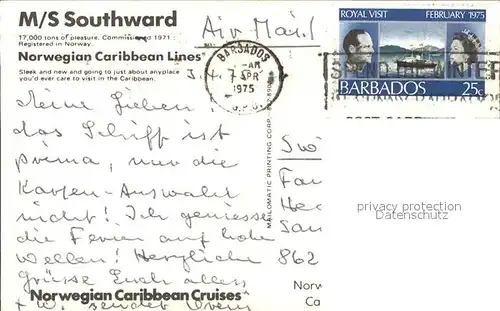 M/S Southward
17,000 tons of pleasure. Commissioned 1971
Registered in Norway.
Norwegian Caribbean Lines
Sleek and new and going to just about anyplace
you'd ever care to visit in the Caribbean.
Air Mail
BARBADOS
AM
7 APR
1975
G.P.O.
ROYAL VISIT FEBRUARY 1975
BARBADOS
25c
Meine Lieben!
das Schiff ist
prima, nur die
Karten-Auswahl
nicht! Ich geniesse
die Ferien auf hohe
Wellen! Herzliche
Grüsse Euch allen
sendet
MAILOMATIC PRINTING CORP.
Fa
He
San
862
privacy protection
Datenschutz
Norwegian Caribbean Cruises
Norw
Ca